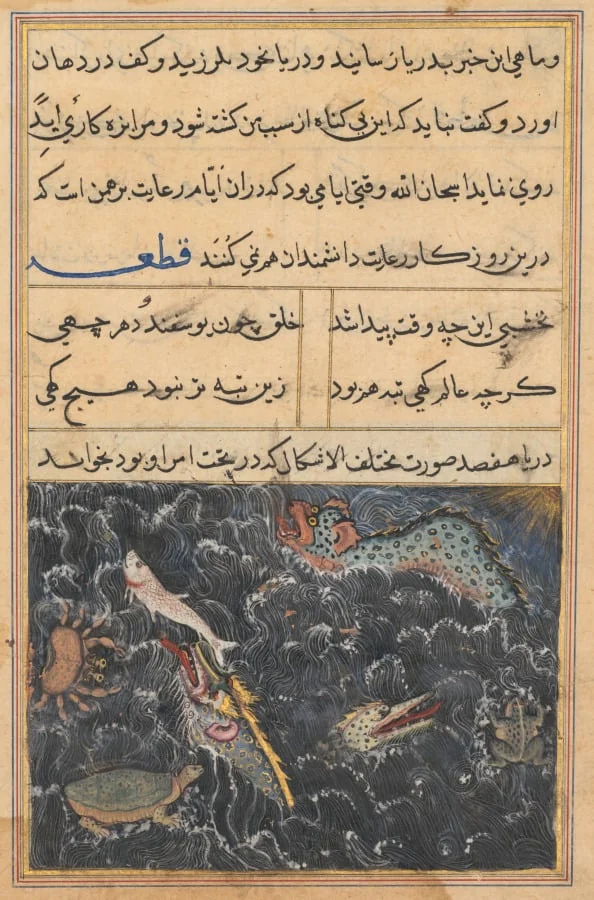 و ماهی این خبر بدریا رسانید و دریا بخود بلرزید و کف در دهان
اورد و کفت نباید که این بی کناه از سبب من کشته شود و مرا بزه کاری ابد
روی نماید سبحان الله وقتی ایامی بود که دران ایام رعایت برهمن است که
درین روزکار رعایت دانشمندان هم نمی کنند قطعه
نخشبی این چه وقت پیدا شد خلق چون یوسفند و دهر چهی
کرچه عالم کهی تبه هم بود زین تبه تر نبود هیچ کهی
دریا هفصد صورت مختلف الاشکال که در تحت امر او بود بخواند